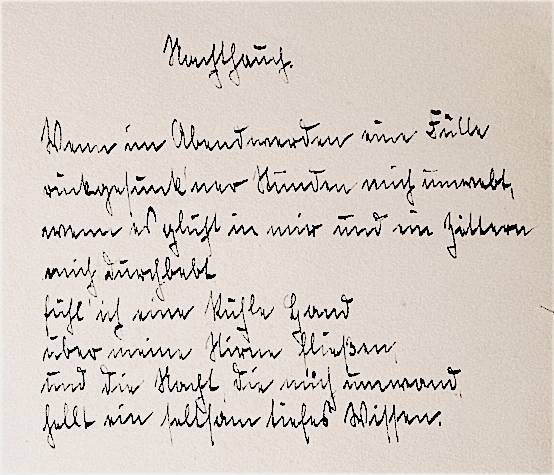 Nachthauch.
Wenn im Abendwerden eine Fülle
rückgesunk'ner Stunden mich umwebt,
wenn es glüht in mir und ein Zittern
mich durchbebt
fühl' ich eine kühle Hand
über meine Stirne fließen,
und die Nacht, die mich umwand,
hellt ein seltsam tiefes Wissen.